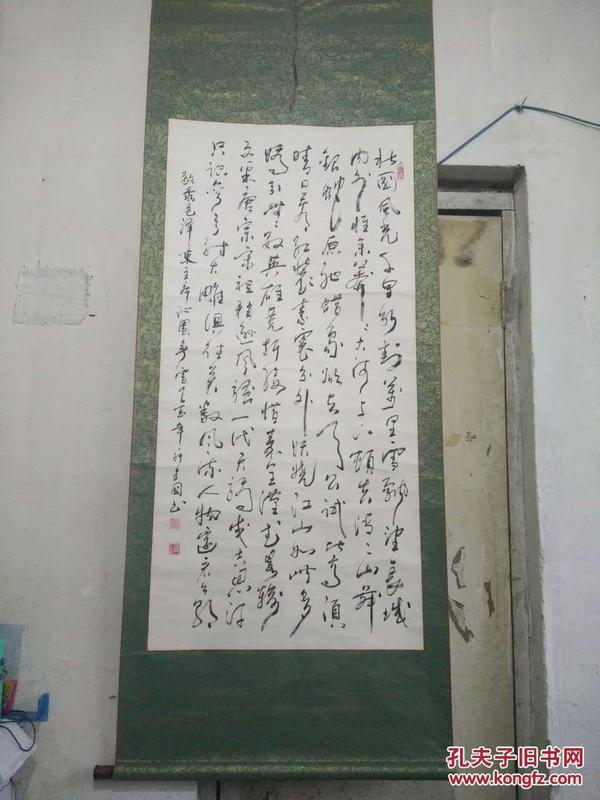 北国风光千里冰封万里雪飘望长城
内外惟余莽莽大河上下顿失滔滔山舞
银蛇原驰蜡象欲与天公试比高须
晴日看红装素裹分外妖娆江山如此多
娇引无数英雄竞折腰惜秦皇汉武略输
文采唐宗宋祖稍逊风骚一代天骄成吉思汗
只识弯弓射大雕俱往矣数风流人物还看今朝
敬录毛泽東主席沁园春雪 年 建国书
孔夫子旧书网
www.kongfz.com